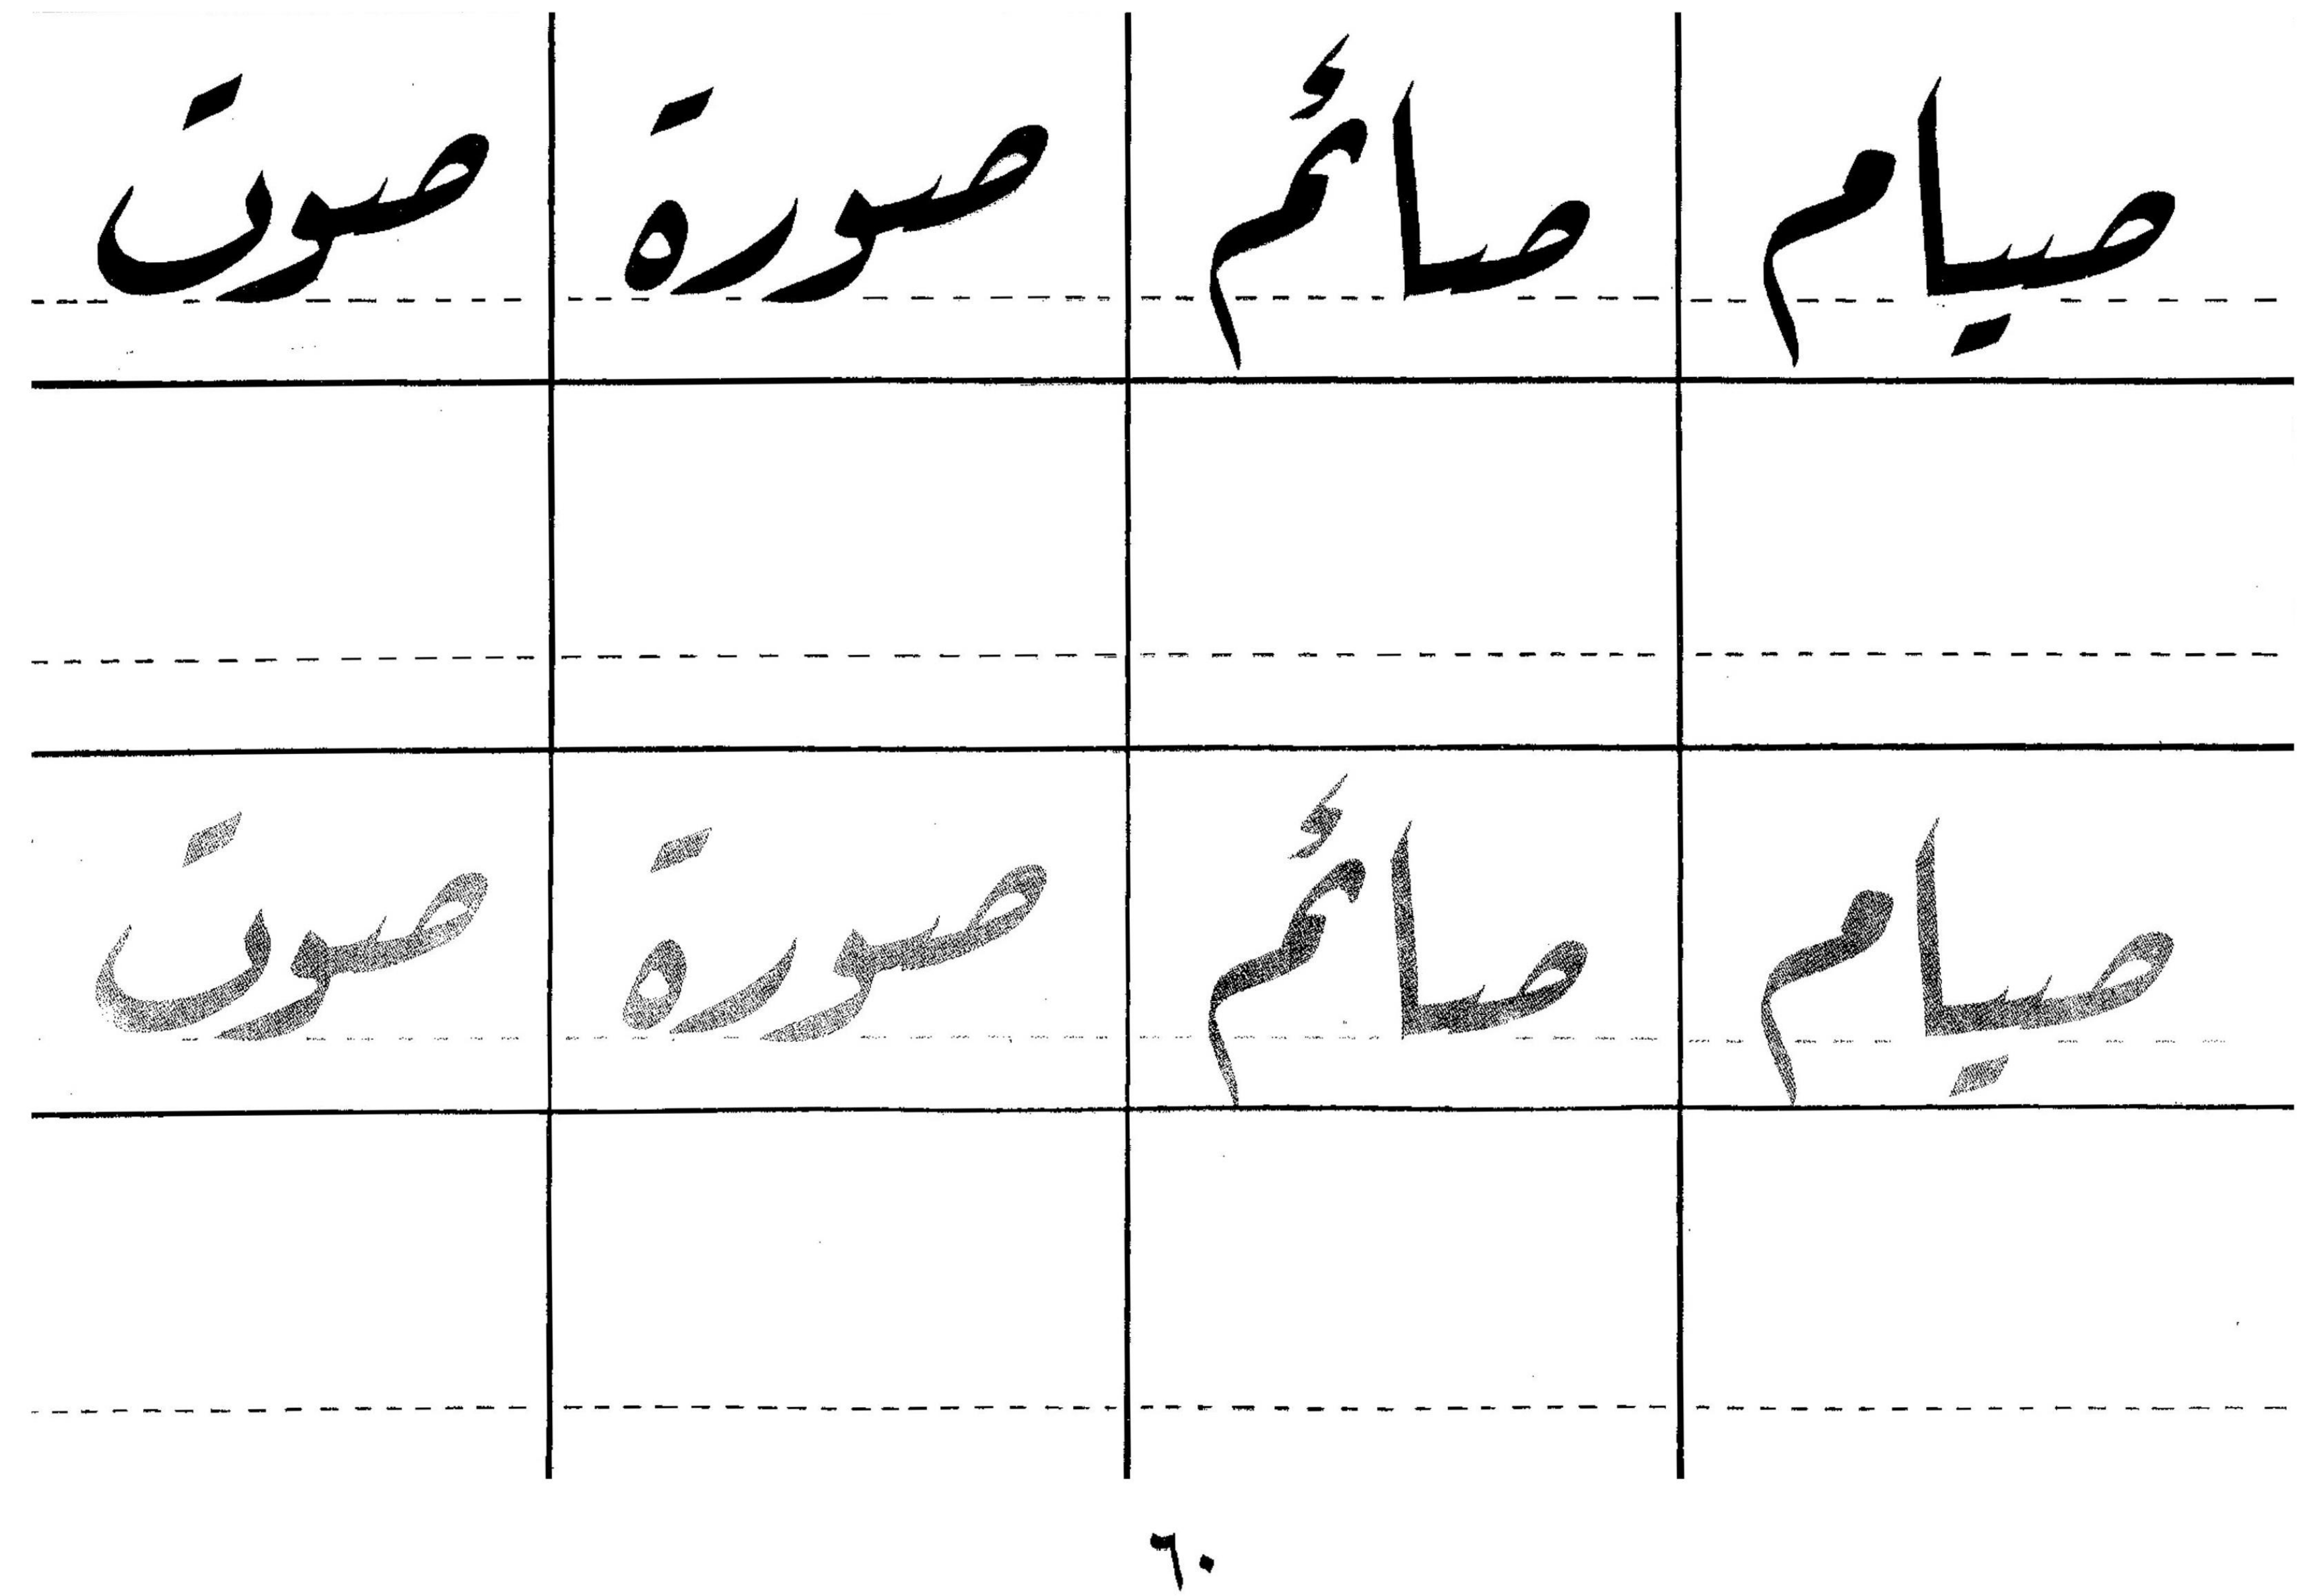 صيام صائم صورة صوت
صيام صائم صورة صوت
٦٠